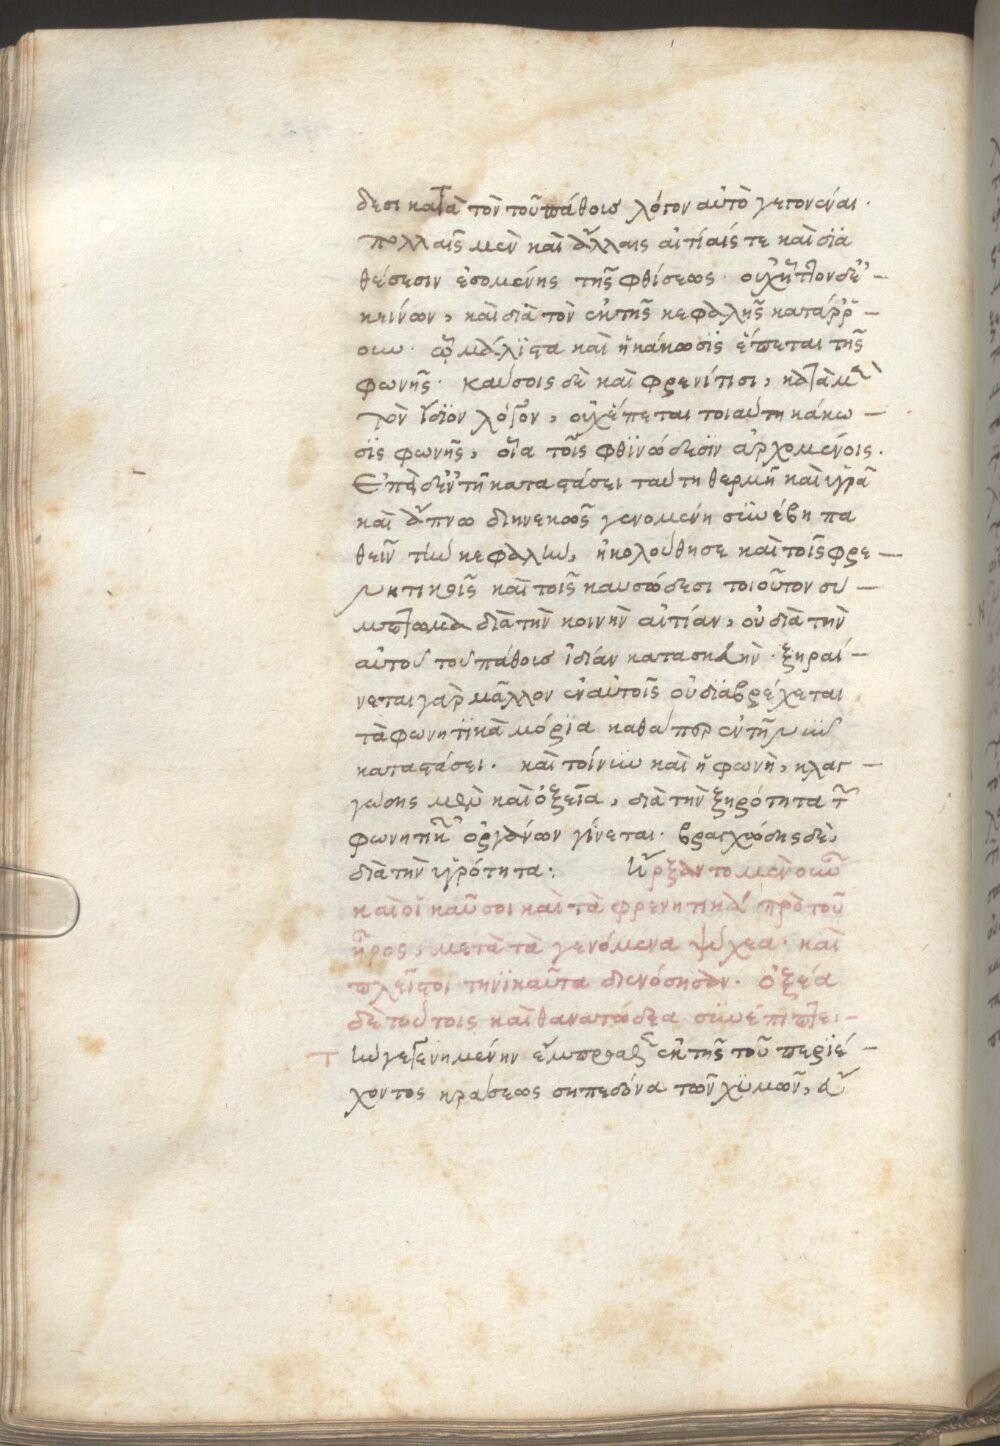 δεσι κατὰ τὸν τοῦ πάθους λόγον αὐτὸ γεγονέναι·
πολλαῖς μὲν καὶ ἄλλαις αἰτίαις τε καὶ δϊα
θέσεσιν ἑσομένης τῆς φθίσεως· οὐχ ἧττον δὲ ἐ–
κείνων, καὶ διὰ τὸν ἐκ τῆς κεφαλῆς κατάρρ–
ουν· ᾧ μάλιστα καὶ ἡ κάκωσϊς ἕπεται τῆς
φωνῆς· καύσοις δὲ καὶ φρενίτισι, κατὰ μὲν
τὸν ἴδϊον λόγον, οὐχ ἕπεται τοιαύτη κάκω–
σϊς φωνῆς, οἵα τοῖς φθϊνώδεσϊν ἀρχομένοις.
Ἐπεὶ δ' ἐν τῆ καταστάσει ταύτη θερμῆ καὶ ὑγρᾶ
καὶ ἄπνω διηνεκῶς γενομένη συνέβη πα
θεῖν τὴν κεφαλὴν, ἠκολούθησε καὶ τοῖς φρε–
νιτικοῖς καὶ τοῖς καυσώδεσι τοιοῦτον συ–
μπτωμα διὰ τὴν κοινὴν αἰτίαν, οὐ διὰ τὴν
αὐτοῦ τοῦ πάθους ἰδίαν κατασκευὴν· ξηραί–
νεται γὰρ μᾶλλον ἐν αὐτοῖς οὐ δϊαβρέχεται
τὰ φωνητϊκὰ μόρϊα καθάπερ ἐν τῆ νῦν
καταστάσει· καὶ τοίνυν καὶ ἡ φωνὴ, κλαγ–
γώδης μὲν καὶ ὀξεῖα, διὰ τὴν ξηρότητα τῶν
φωνητικῶν ὀργάνων γίνεται· βραγχώδης δὲ,
διὰ τὴν ὑγρότητα: Ἤρξαντο μὲν οὖν
καὶ οἱ καῦσοι καὶ τὰ φρενητικὰ πρὸ τοῦ
ἦρος, μετὰ τὰ γενόμενα ψύχεα· καὶ
πλεῖστοι τηνϊκαῦτα διενόσησαν· ὀξέα
δὲ τούτοις καὶ θανατώδεα συνέπιπτε:–
Τὴν γεγενημένην ἔμπροσθεν ἐκ τῆς τοῦ περϊέ–
χοντος κράσεως σηπεδόνα τῶν χϋμῶν,